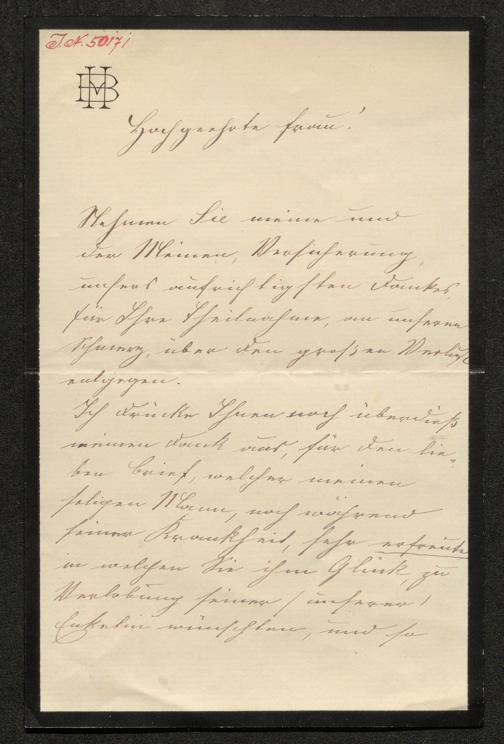 J. N. 50171
HMB
Hochgeehrte Frau!
Nehmen Sie meine und
der Meinen, Versicherung,
unsers aufrichtigsten Dankes
für Ihre Theilnahme, an unseren
Schmerz, über den großen Verlust
entgegen.
Ich drücke Ihnen noch überdieß
meinen Dank aus, für den lie„
ben Brief, welcher meinen
seligen Mann, noch während
seiner Krankheit, sehr erfreute
in welchen Sie ihm Glück, zu
Verlobung seiner / unserer /
Enkelin wünschten, und so